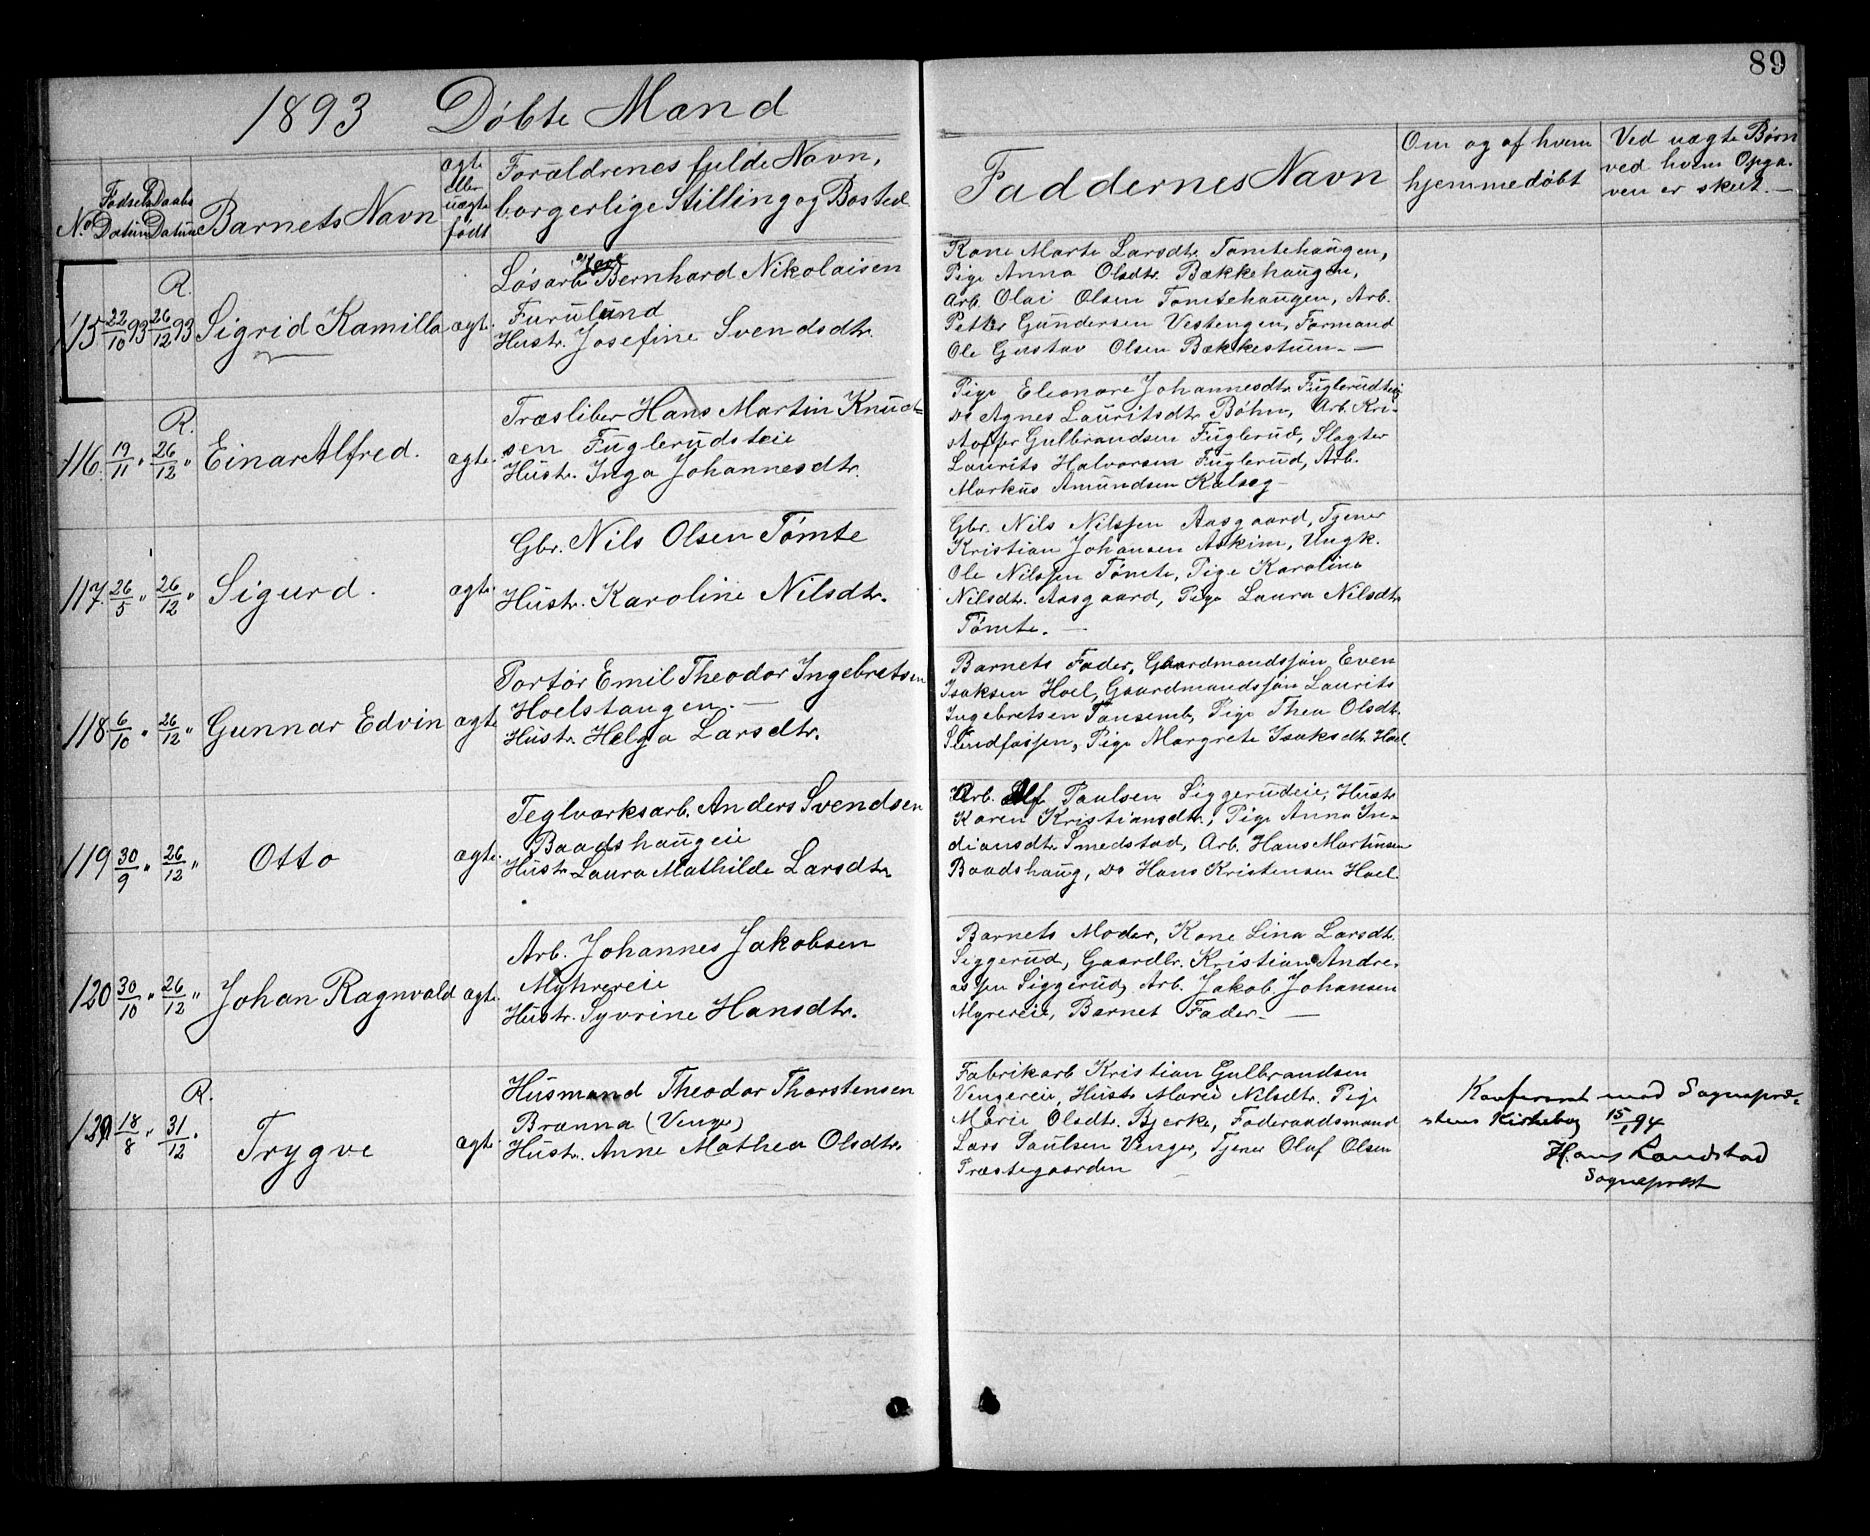 89
1893 Døbte Mænd
No. Fødsels Datum Daabs Datum Barnets Navn ægte eller uægte født Forældrenes fulde Navn, borgerlige Stilling og Bosted
Faddernes Navn
Om og af hvem hjemmedøbt
Ved uægte Børn ved hvem Opgaven er skeet.—
R.
115 22/10 93 26/12 93 Sigrid Kamilla ægte
Løsarb. Bernhard Nikolaisen
Furulund
Hustr. Josefine Svendsdtr.
Kone Marte Larsdtr. Tømtehaugen,
Pige Anna Olsdtr. Bækkehaugen,
Arb. Olai Olsen Tomtehaugen, Arb.
Petter Gundersen Vestengen, Formand
Ole Gustav Olsen Bækkestuen.—
R.
116. 19/11 " 26/12 " Einar Alfred. ægte.
Træsliber Hans Martin Knud-
sen Fuglerudsteie
Hustr. Inga Johannesdtr.
Pige Eleonore Johannesdtr. Fuglerudteie
Do Agnes Lauritsdtr. Bøhn, Arb. Kri-
stoffer Gulbrandsen Fuglerud, Slagter
Laurits Halvorsen Fuglerud, Arb.
Markus Amundsen Kalsæg—
117. 26/5 " 26/12 " Sigurd. ægte.
Gbr. Nils Olsen Tømte
Hustr. Karoline Nilsdtr.
Gbr. Nils Nilssen Aasgaard, Tjener
Kristian Johansen Askim, Ungk.
Ole Nilssen Tømte, Pige Karoline
Nilsdtr. Aasgaard, Pige Laura Nilsdtr.
Tømte.—
118. 6/10 " 26/12 " Gunnar Edvin ægte
Portør Emil Theodor Ingebretsen
Hoelstangen.—
Hustr. Helga Larsdtr.
Barnets Fader, Gaardmandssøn Even
Isaksen Hoel, Gaardmandssøn Laurits
Ingebretsen Tansemb, Pige Thea Olsdt.
Slundfossen, Pige Margrete Isaksdtr. Hoel.
119 30/9 " 26/12 " Otto ægte.
Teglværksarb. Anders Svendsen
Baadshaugeie
Hustr. Laura Mathilde Larsdtr.
Arb. Paulsen Siggerudeie, Hustr
Karen Kristiansdtr., Pige Anna In-
diansdtr. Smedstad, Arb. Hans Martinsen
Baadshaug, Do Hans Kristensen Hoel.
120 30/10 " 26/12 " Johan Ragnvald ægte.
Arb. Johannes Jakobsen
Myhrereie
Hustr. Syvrine Hansdtr.
Barnets Moder, Kone Lina Larsdt.
Siggerud, Gaardbr. Kristian Andre-
assen Siggerud, Arb. Jakob Johansen
Myrereie, Barnet Fader.—
R.
121 18/8 " 31/12 " Trygve ægte
Husmand Theodor Thorstensen
Brænna (Venger)
Hustr. Anne Mathea Olsdtr.
Fabrikarb Kristian Gulbrandsen
Vengereie, Hustr Marie Nilsdtr. Pige
Marie Olsdtr. Bjerke, Føderaadsmand
Lars Paulsen Venger, Tjener Oluf Olsen
Præstegaarden
Konfereret med Sognepræ-
stens Kirkebog 15/1 94
Hans Landstad
Sogneprest